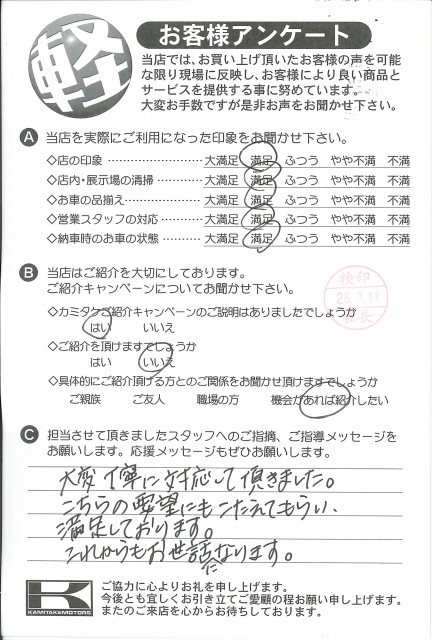 軽
お客様アンケート
当店では、お買い上げ頂いたお客様の声を可能
な限り現場に反映し、お客様により良い商品と
サービスを提供する事に努めています。
大変お手数ですが是非お声をお聞かせ下さい。
A 当店を実際にご利用になった印象をお聞かせ下さい。
◇店の印象 ………………… 大満足 満足 ふつう やや不満 不満
◇店内・展示場の清掃 ………… 大満足 満足 ふつう やや不満 不満
◇お車の品揃え ……………… 大満足 満足 ふつう やや不満 不満
◇営業スタッフの対応 ………… 大満足 満足 ふつう やや不満 不満
◇納車時のお車の状態 ………… 大満足 満足 ふつう やや不満 不満
B 当店はご紹介を大切にしております。
ご紹介キャンペーンについてお聞かせ下さい。
検印
28.1.11
店長
◇カミタケご紹介キャンペーンのご説明はありましたでしょうか
はい いいえ
◇ご紹介を頂けますでしょうか
はい いいえ
◇具体的にご紹介頂ける方とのご関係をお聞かせ頂けますでしょうか
ご親族 ご友人 職場の方 機会があれば紹介したい
C 担当させて頂きましたスタッフへのご指摘、ご指導メッセージを
お願いします。応援メッセージもぜひお願いします。
大変丁寧に対応して頂きました。
こちらの要望にもこたえてもらい、
満足しております。
これからもお世話になります。
K
KAMITAKEMOTORS
ご協力に心よりお礼を申し上げます。
今後とも宜しくお引き立てご愛顧の程お願い申し上げます。
またのご来店を心からお待ちしております。